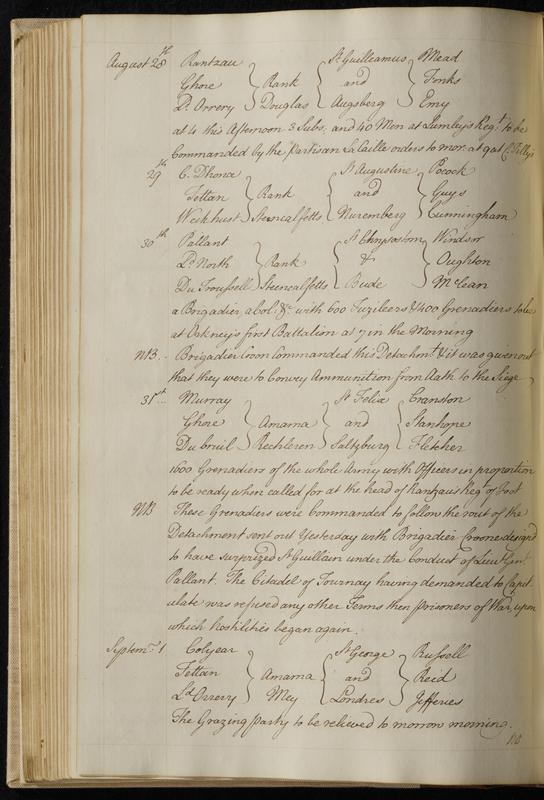 August 28th Rantzau } Rank { St Guilleamus } Mead
Ghore } { and } Fonks
Ld. Orrery Douglas Augsberg Emy
at 4 this Afternoon 3 Subs, and 40 Men at Lumley's Regt. to be
Commanded by the Partisan La Caille orders to mor. at 9 at
29th C. Dhona St Augustine Pocock
Tettau } Rank { and } Guys
Weekhust Steencalfetts Nuremberg Cunningham
30th Pallant St Chrysostom Windsor
Ld. North } Rank { & } Oughton
Du Troussell Steencalfetts Bude McLean
a Brigadier, a Col: &c. with 600 Fuzileers & 400 Grenadiers to be
at Orkney's first Battalion at 7 in the Morning
NB. - Brigadier Croon Commanded this Detachmt. & it was given out
that they were to Convey Ammunition from Aath to the Siege
31st. Murray } { St Felix } Cranston
Ghore } Amama { and } Stanhope
Du bruil } Rechteren { Saltzburg } Fletcher
1600 Grenadiers of the whole Army with Officers in proportion
to be ready when called for at the head of Rantzau's Regt. of Foot
NB These Grenadiers were Commanded to follow the rout of the
Detachment sent out Yesterday with Brigadier Croone design'd
to have surprized St Guillain under the Conduct of Lieut. Genl.
Pallant. The Citadel of Tournay having demanded to Capit
ulate was refused any other Terms then prisoners of War, upon
which hostilities began again.
Septemr. 1 Colyear St George Russell
Tettau } Amama { and } Reed
Ld. Orrery Mey Londres Jefferies
The Grazing party to be relieved to morrow morning.